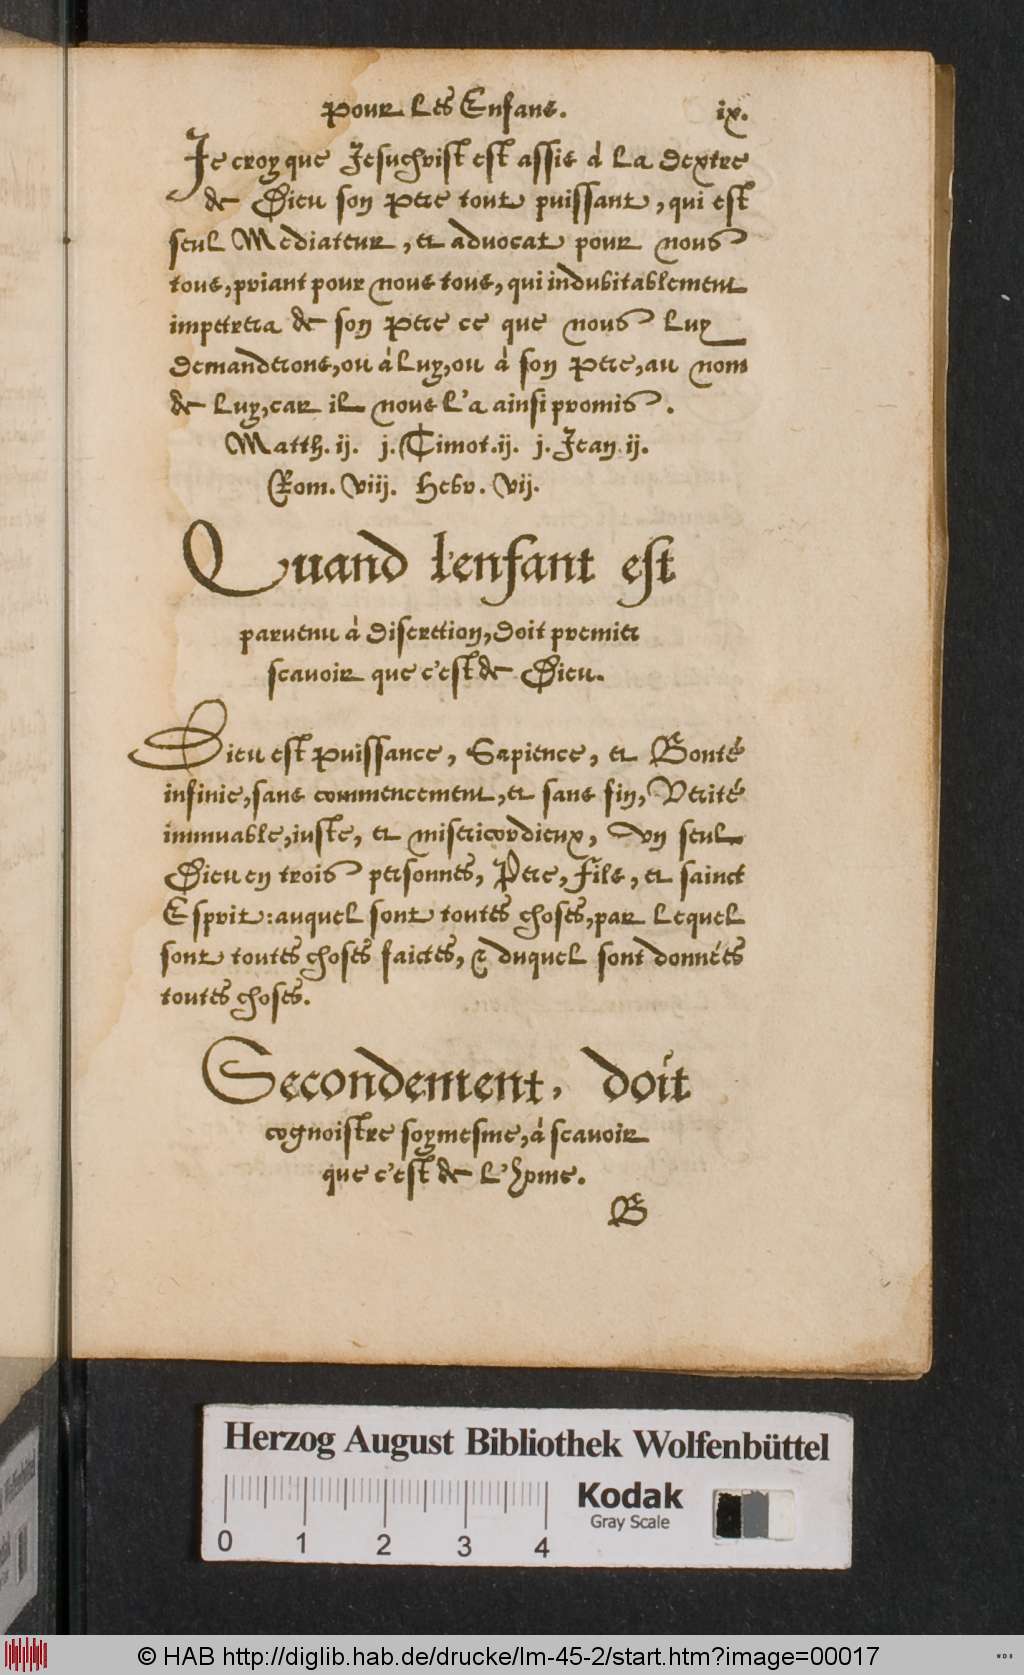 pour les Enfans. ix.
Je croy que Jesuchrist est assis à la dextre
de Dieu son Pere tout puissant, qui est
seul Mediateur, et advocat pour nous
tous, priant pour nous tous, qui indubitablement
impetrera de son Pere ce que nous luy
demanderons, ou à luy, ou à son Pere, au nom
de luy, car il nous l'a ainsi promis.
Matth. ij. j. Timot. ij. j. Jean ij.
Rom. viij. Hebr. vij.
Quand l'enfant est
parvenu à discretion, doit premier
scavoir que c'est de Dieu.
Dieu est puissance, Sapience, et Bonté
infinie, sans commencement, et sans fin, Verité
immuable, iuste, et misericordieux, vn seul
Dieu en trois personnes, Pere, fils, et sainct
Esprit: auquel sont toutes choses, par lequel
sont toutes choses faictes, & duquel sont données
toutes choses.
Secondement, doit
cognoistre soymesme, à scavoir
que c'est de l'hõme.
B
Herzog August Bibliothek Wolfenbüttel
Kodak
Gray Scale
0 1 2 3 4
© HAB http://diglib.hab.de/drucke/lm-45-2/start.htm?image=00017